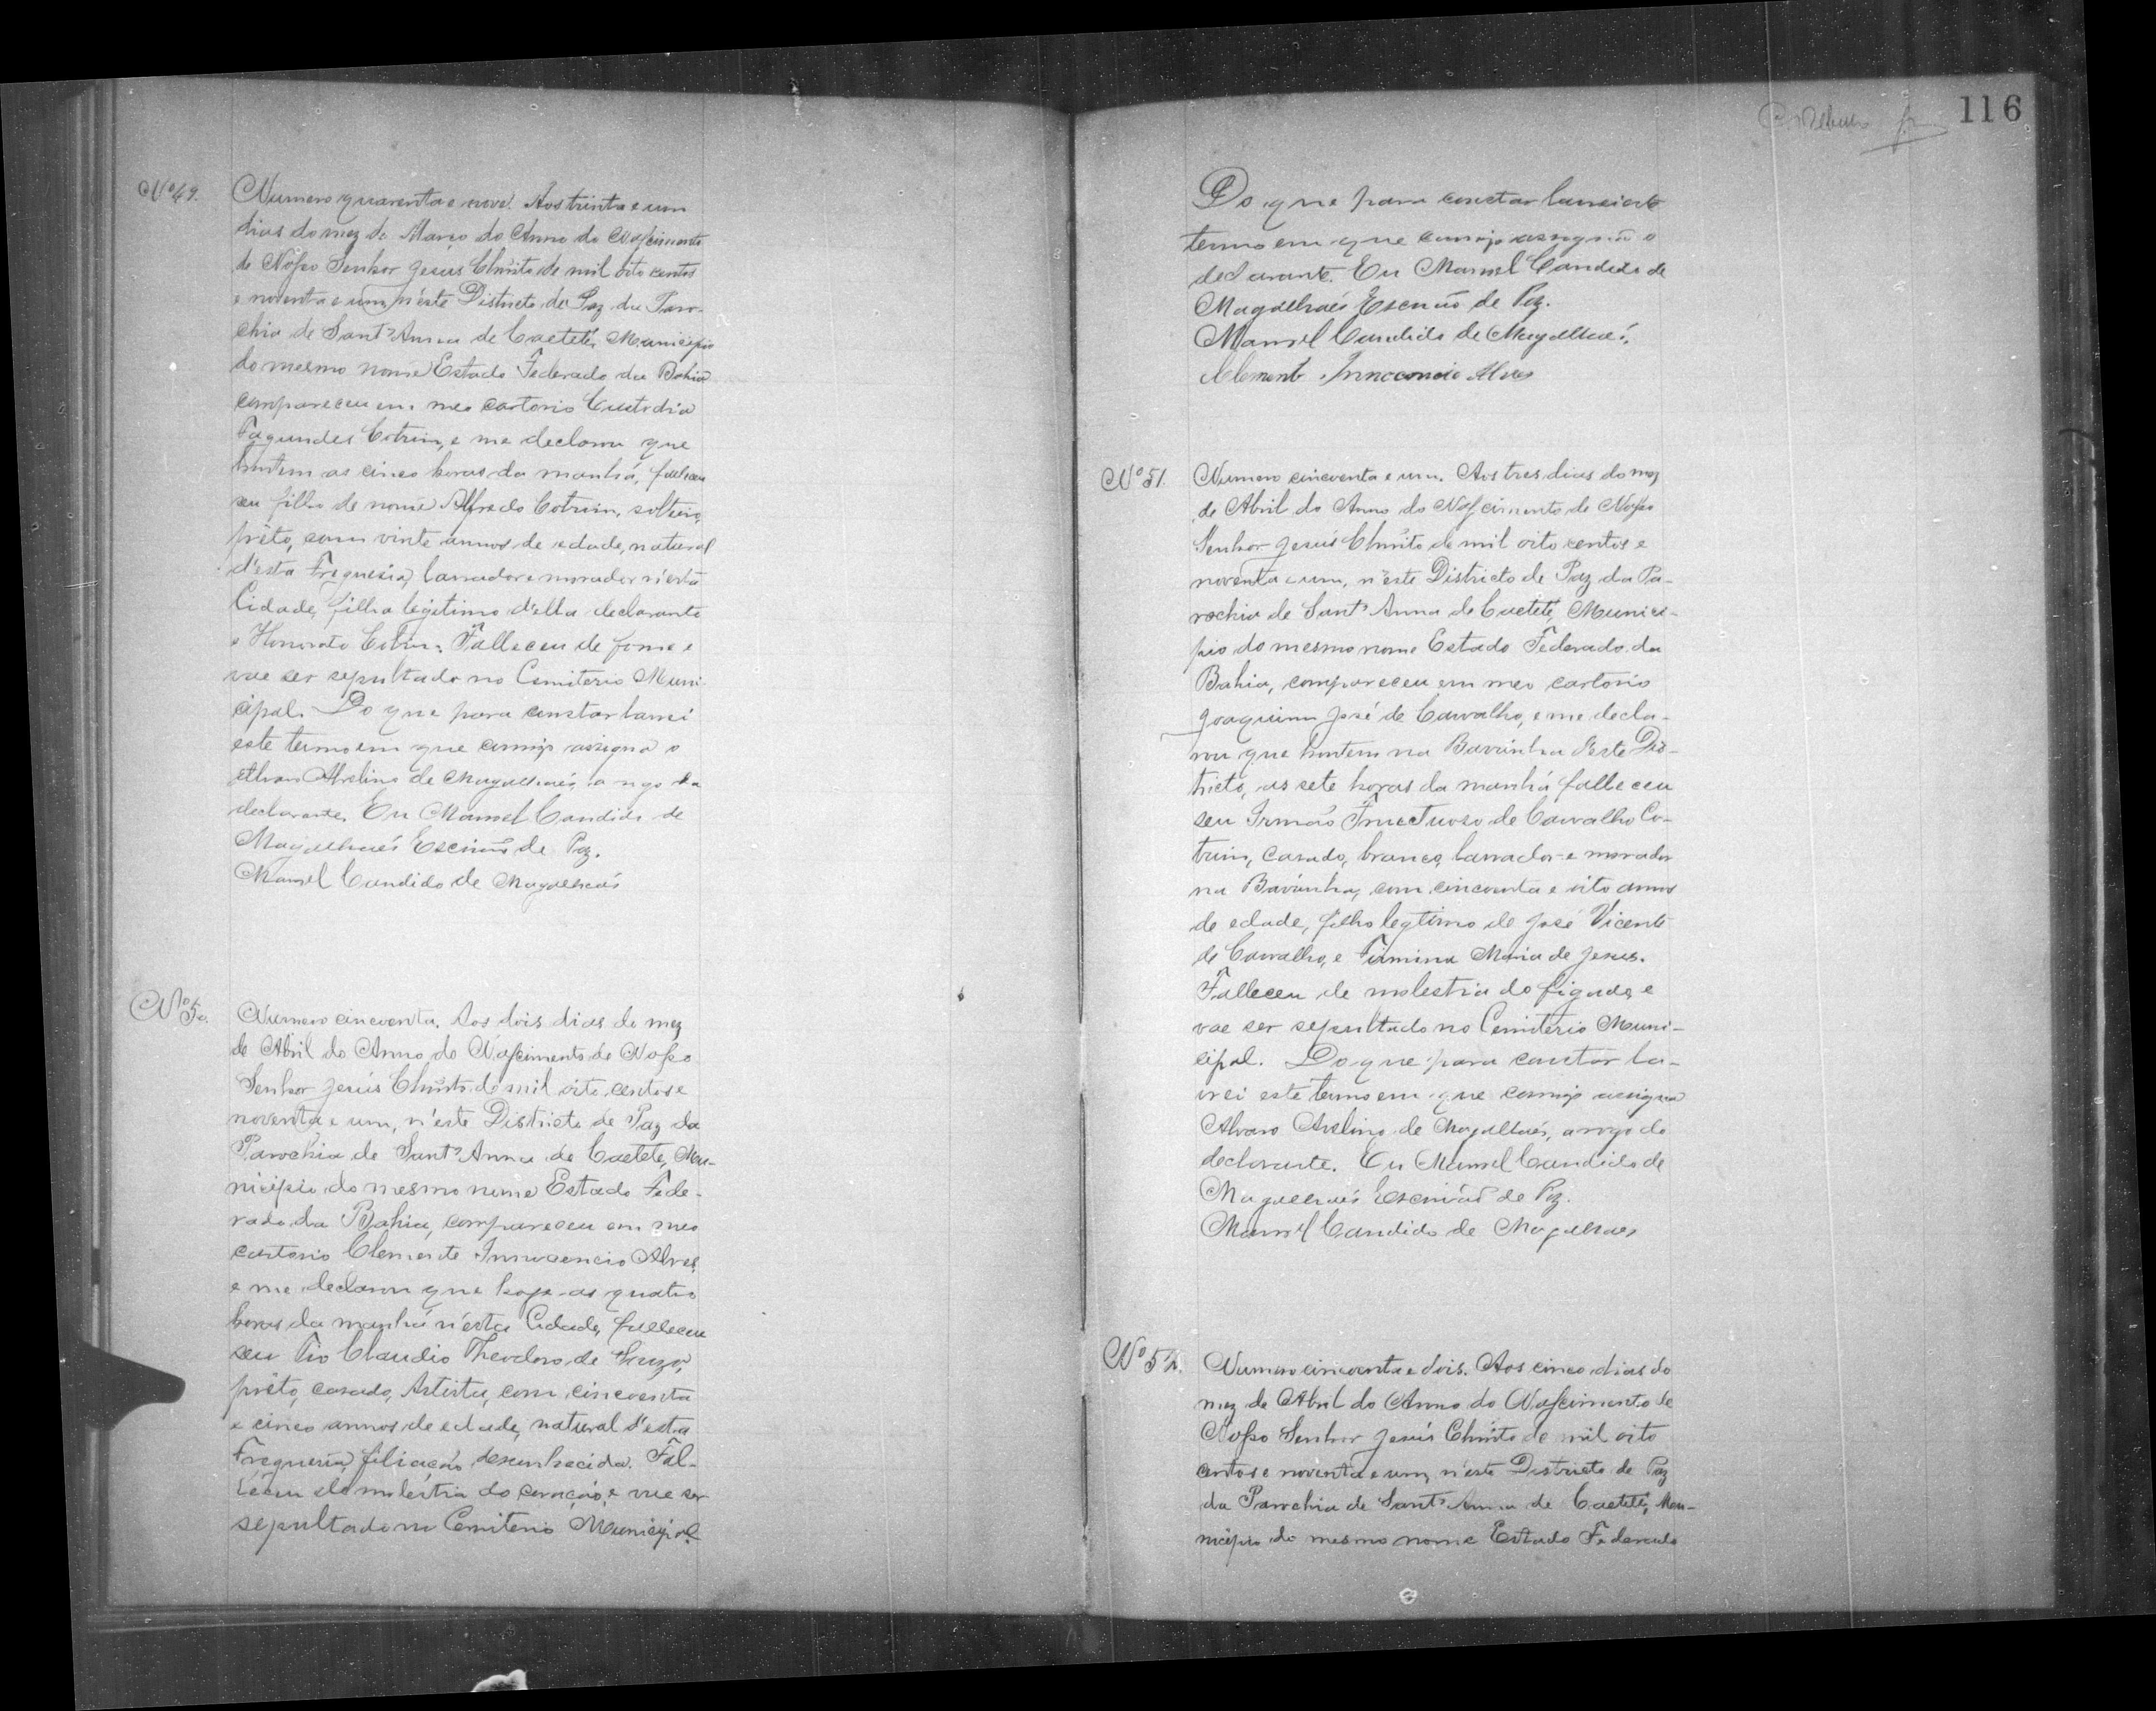 Nº 49.
Numero quarenta e nove. Aos trinta e um
dias do mez de Março do Anno do Nascimento
de Nosso Senhor Jesus Christo de mil oito centos
e noventa e um, n'este Districto de Paz da Paro-
chia de Sant'Anna de Caeteté, Municipio
do mesmo nome Estado Federado da Bahia
compareceu em meo cartorio Custodia
Fagundes Cotrim, e me declarou que
hontem as cinco horas da manhã, falleceu
seu filho de nome Alfredo Cotrim, solteiro,
prêto, com vinte annos de edade, natural
d'esta Freguesia, lavrador e morador n'esta
Cidade, filho legitimo d'ella declarante
e Honorato Cotrim. Falleceu de fome e
vae ser sepultado no Cemiterio Muni-
cipal. Do que para constar lavrei
este termo em que comigo assigna o
Alvaro Avelino de Magalhaés, a rogo da
declarante. Eu Manoel Candido de
Magalhaés Escrivaõ de Paz.
Manoel Candido de Magalhaés
Nº 50.
Numero cincoenta. Aos dois dias do mez
de Abril do Anno do Nascimento de Nosso
Senhor Jesús Christo de mil oito centos e
noventa e um, n'este Districto de Paz da
Parochia de Sant'Anna de Caeteté, Mu-
nicipio do mesmo nome Estado Fede-
rado da Bahia, compareceu em meo
cartorio Clemente Innocencio Alves
e me declarou que hoje as quatro
horas da manhã n'esta Cidade, falleceu
seu Tio Claudio Theodoro de Souza,
prêto, casado, Artista, com cincoenta
e cinco annos de edade, natural d'esta
Freguesia, filiação desconhecida. Fal-
leceu de moléstia do coração, e vae ser
sepultado no Cemiterio Municipal.
116
Do que para constar lavrei este
termo em que comigo assigna o
declarante. Eu Manoel Candido de
Magalhaés Escrivaõ de Paz.
Manoel Candido de Magalhaés.
Clemente Innocencio Alves
Nº 51.
Numero cincoenta e um. Aos tres dias do mez
de Abril do Anno do Nascimento de Nosso
Senhor Jesús Christo de mil oito centos e
noventa e um, n'este Districto de Paz da Pa-
rochia de Sant'Anna de Caeteté, Munici-
pio do mesmo nome Estado Federado da
Bahia, compareceu em meo cartorio
Joaquim José de Carvalho, e me decla-
rou que hontem na d'este Dis-
tricto, as sete horas da manhã falleceu
seu Irmaõ Fructuoso de Carvalho Co-
trim, casado, branco, lavrador e morador
na com cincoenta e oito annos
de edade, filho legtimo de José Vicente
de Carvalho, e Firmina Maria de Jesus.
Falleceu de molestia do figado, e
vae ser sepultado no Cemiterio Muni-
cipal. Do que para constar la-
vrei este termo em que comigo assigna
Alvaro Avelino de Magalhaés, a rogo do
declarante. Eu Manoel Candido de
Magalhaés Escrivaõ de Paz.
Manoel Candido de Magalhaes
Nº 52.
Numero cincoenta e dois. Aos cinco dias do
mez de Abril do Anno do Nascimento de
Nosso Senhor Jesús Christo de mil oito
centos e noventa e um, n'este Districto de Paz
da Parochia de Sant'Anna de Caeteté, Mu-
nicipio do mesmo nome Estado Federado